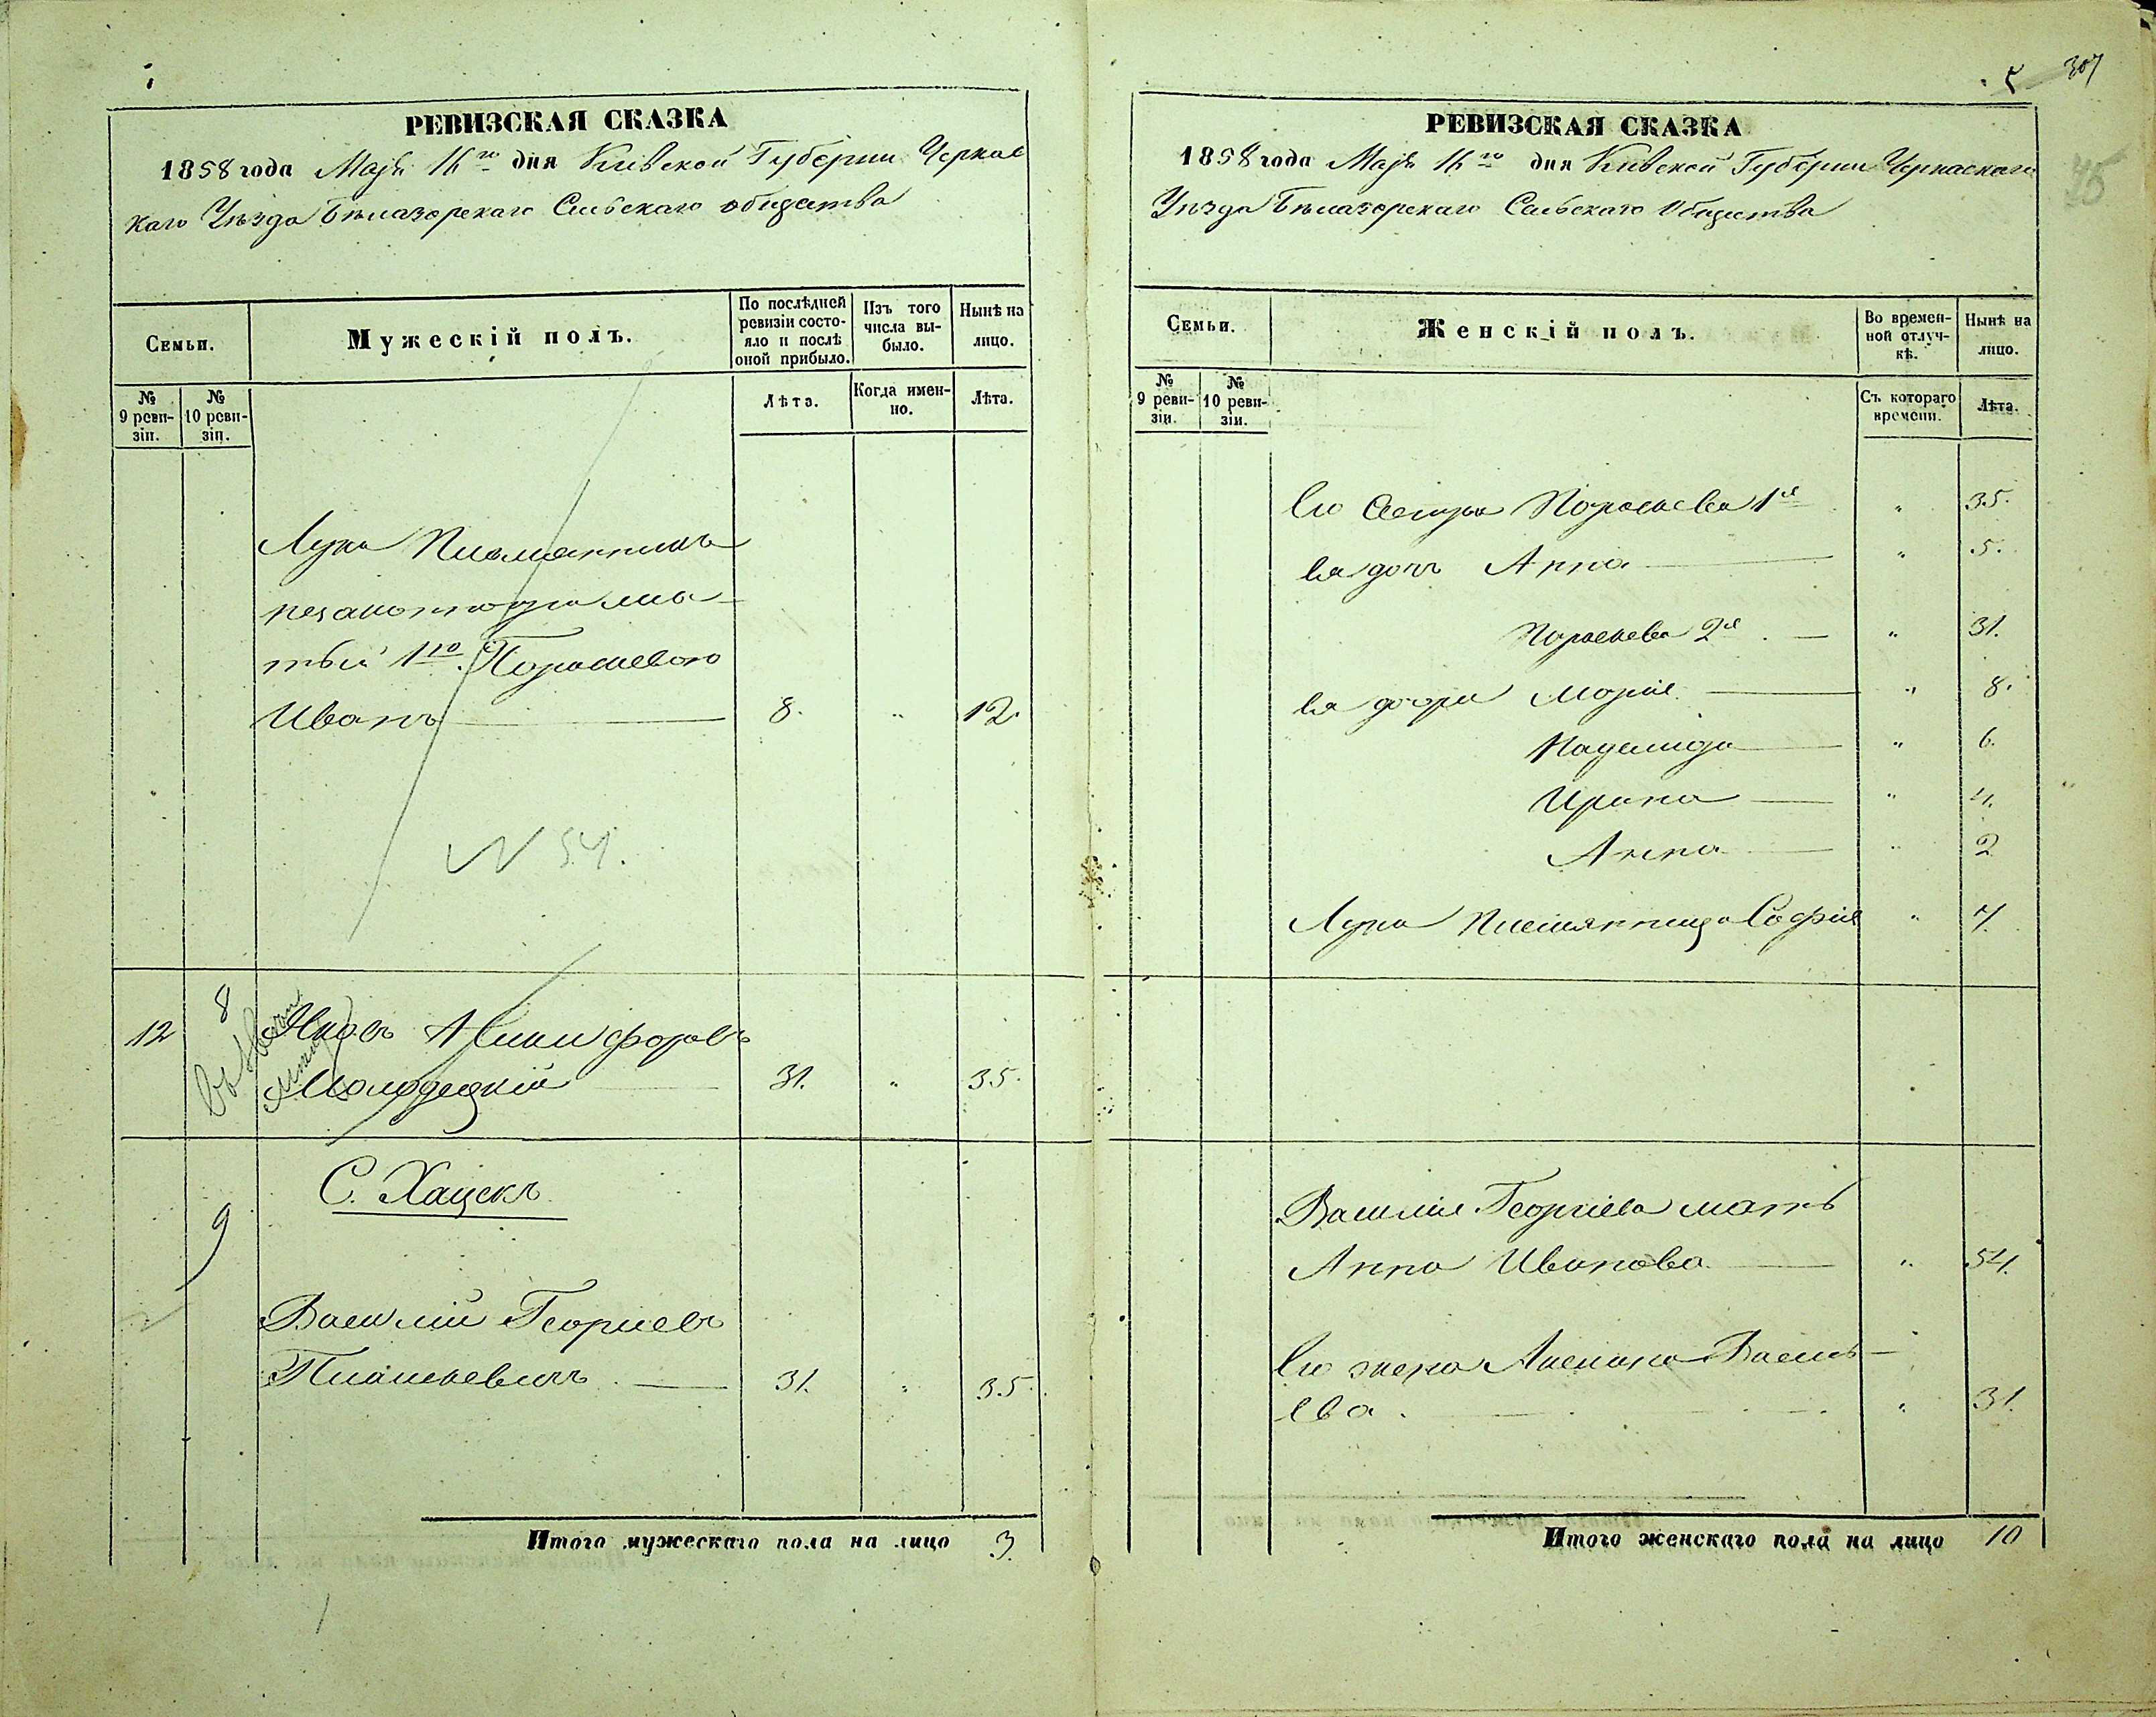 РЕВИЗСКАЯ СКАЗКА
1858 года Маія 16го дня Кіевской Губерніи Черкас
каго Уѣзда Бѣлазерскаго Сельскаго общества
Семьи.
Мужескій полъ.
По послѣдней ревизіи состояло и послѣ оной прибыло.
Изъ того числа выбыло.
Нынѣ на лицо.
№ 9 ревизіи.
№ 10 ревизіи.
Лѣта.
Когда именно.
Лѣта.
Луки Племянникъ
незаконнорожден
1го
Иванъ 8. " 12.
N 54.
12 8 Яковъ Никифоровъ
Молодецкій 31. " 35.
С. Хацекъ
9
Василій Георгіевъ
31. " 35.
Итого мужескаго пола на лицо 3.
5 307
РЕВИЗСКАЯ СКАЗКА
1858 года Маія 16го дня Кіевской Губерніи Черкаскаго
Уѣзда Бѣлазерскаго Сельскаго Общества
Семьи.
Женскій полъ.
Во временной отлучкѣ.
Нынѣ на лицо.
№ 9 ревизіи.
№ 10 ревизіи.
Съ котораго времени.
Лѣта.
Его Сестра Параскева 1я " 35.
Ея дочь Анна " 5.
Параскева 2я " 31.
Ея дочери Марія " 8.
" 6.
Ирина " 4.
Анна " 2
Луки Племянница Софія " 4.
Василія Георгіева мать
Анна Иванова " 54.
Его жена Васильева " 31.
Итого женскаго пола на лицо 10